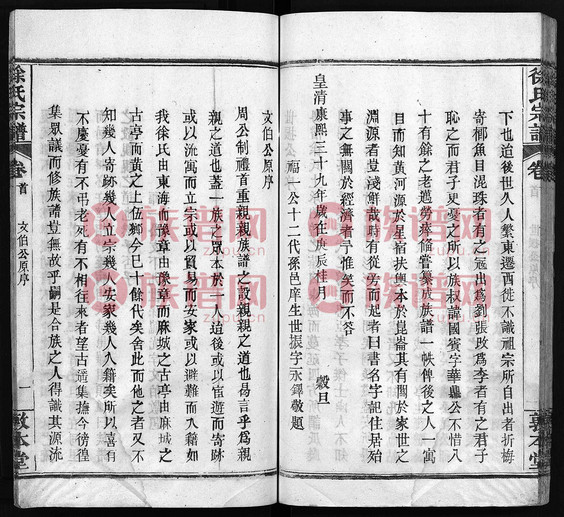 徐氏宗譜
卷首
敦本堂
下也迨後世久人繁東遷西徙不識祖宗所自出者折梅
寄鄉魚目混珠者有之冠出為劉張改為李者有之君子
恥之而君子更憂之所以族叔諱國賓字華鼎公不惜八
十有餘之老邁勞瘁修管纂成族譜一帙俾後之人一寓
目而知黃河源於星宿扶輿本於崑崙其有關於家世之
淵源者豈淺鮮哉時有從旁而起者曰書名字記住居殆
事之無關於經濟者乎惟笑而不答
皇清康熙三十九年歲在庚辰桂月 穀旦
福一公十二代孫邑庠生世振字三永鐸敬題
文伯公原序
周公制禮首重親親族譜之設親親之道也易言乎為親
親之道也蓋一族之眾本於一人迨後或以宦遊而寄跡
或以流寓而立宗或以貿易而安家或以避難而入籍如
我徐氏由東海而豫章由豫章而麻城之古亭由麻城之
古亭而黃之上伍鄉今已十餘代矣舍此而他之者又不
知幾人寄跡幾人立宗幾人安家幾人入籍矣所以喜有
不慶憂有不弔老死有不相往來者望古遙集撫今徬徨
集眾議而修族譜豈無故乎嗣是合族之人得識其源流
徐氏宗譜
卷首
文伯公原序
一
敦本堂
族譜网